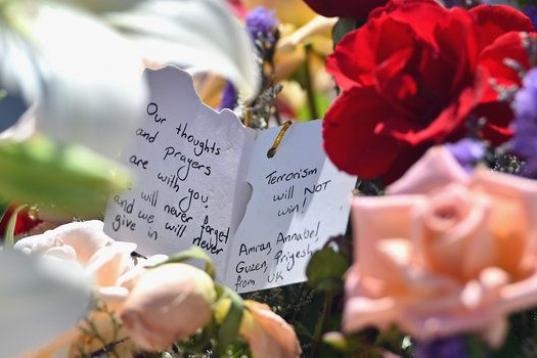 Our thoughts
and prayers
are with you,
will never forget
and we will never
give in
Terrorism
will NOT
win!
Amran, Annabel
Guzen, Prigesh
from UK